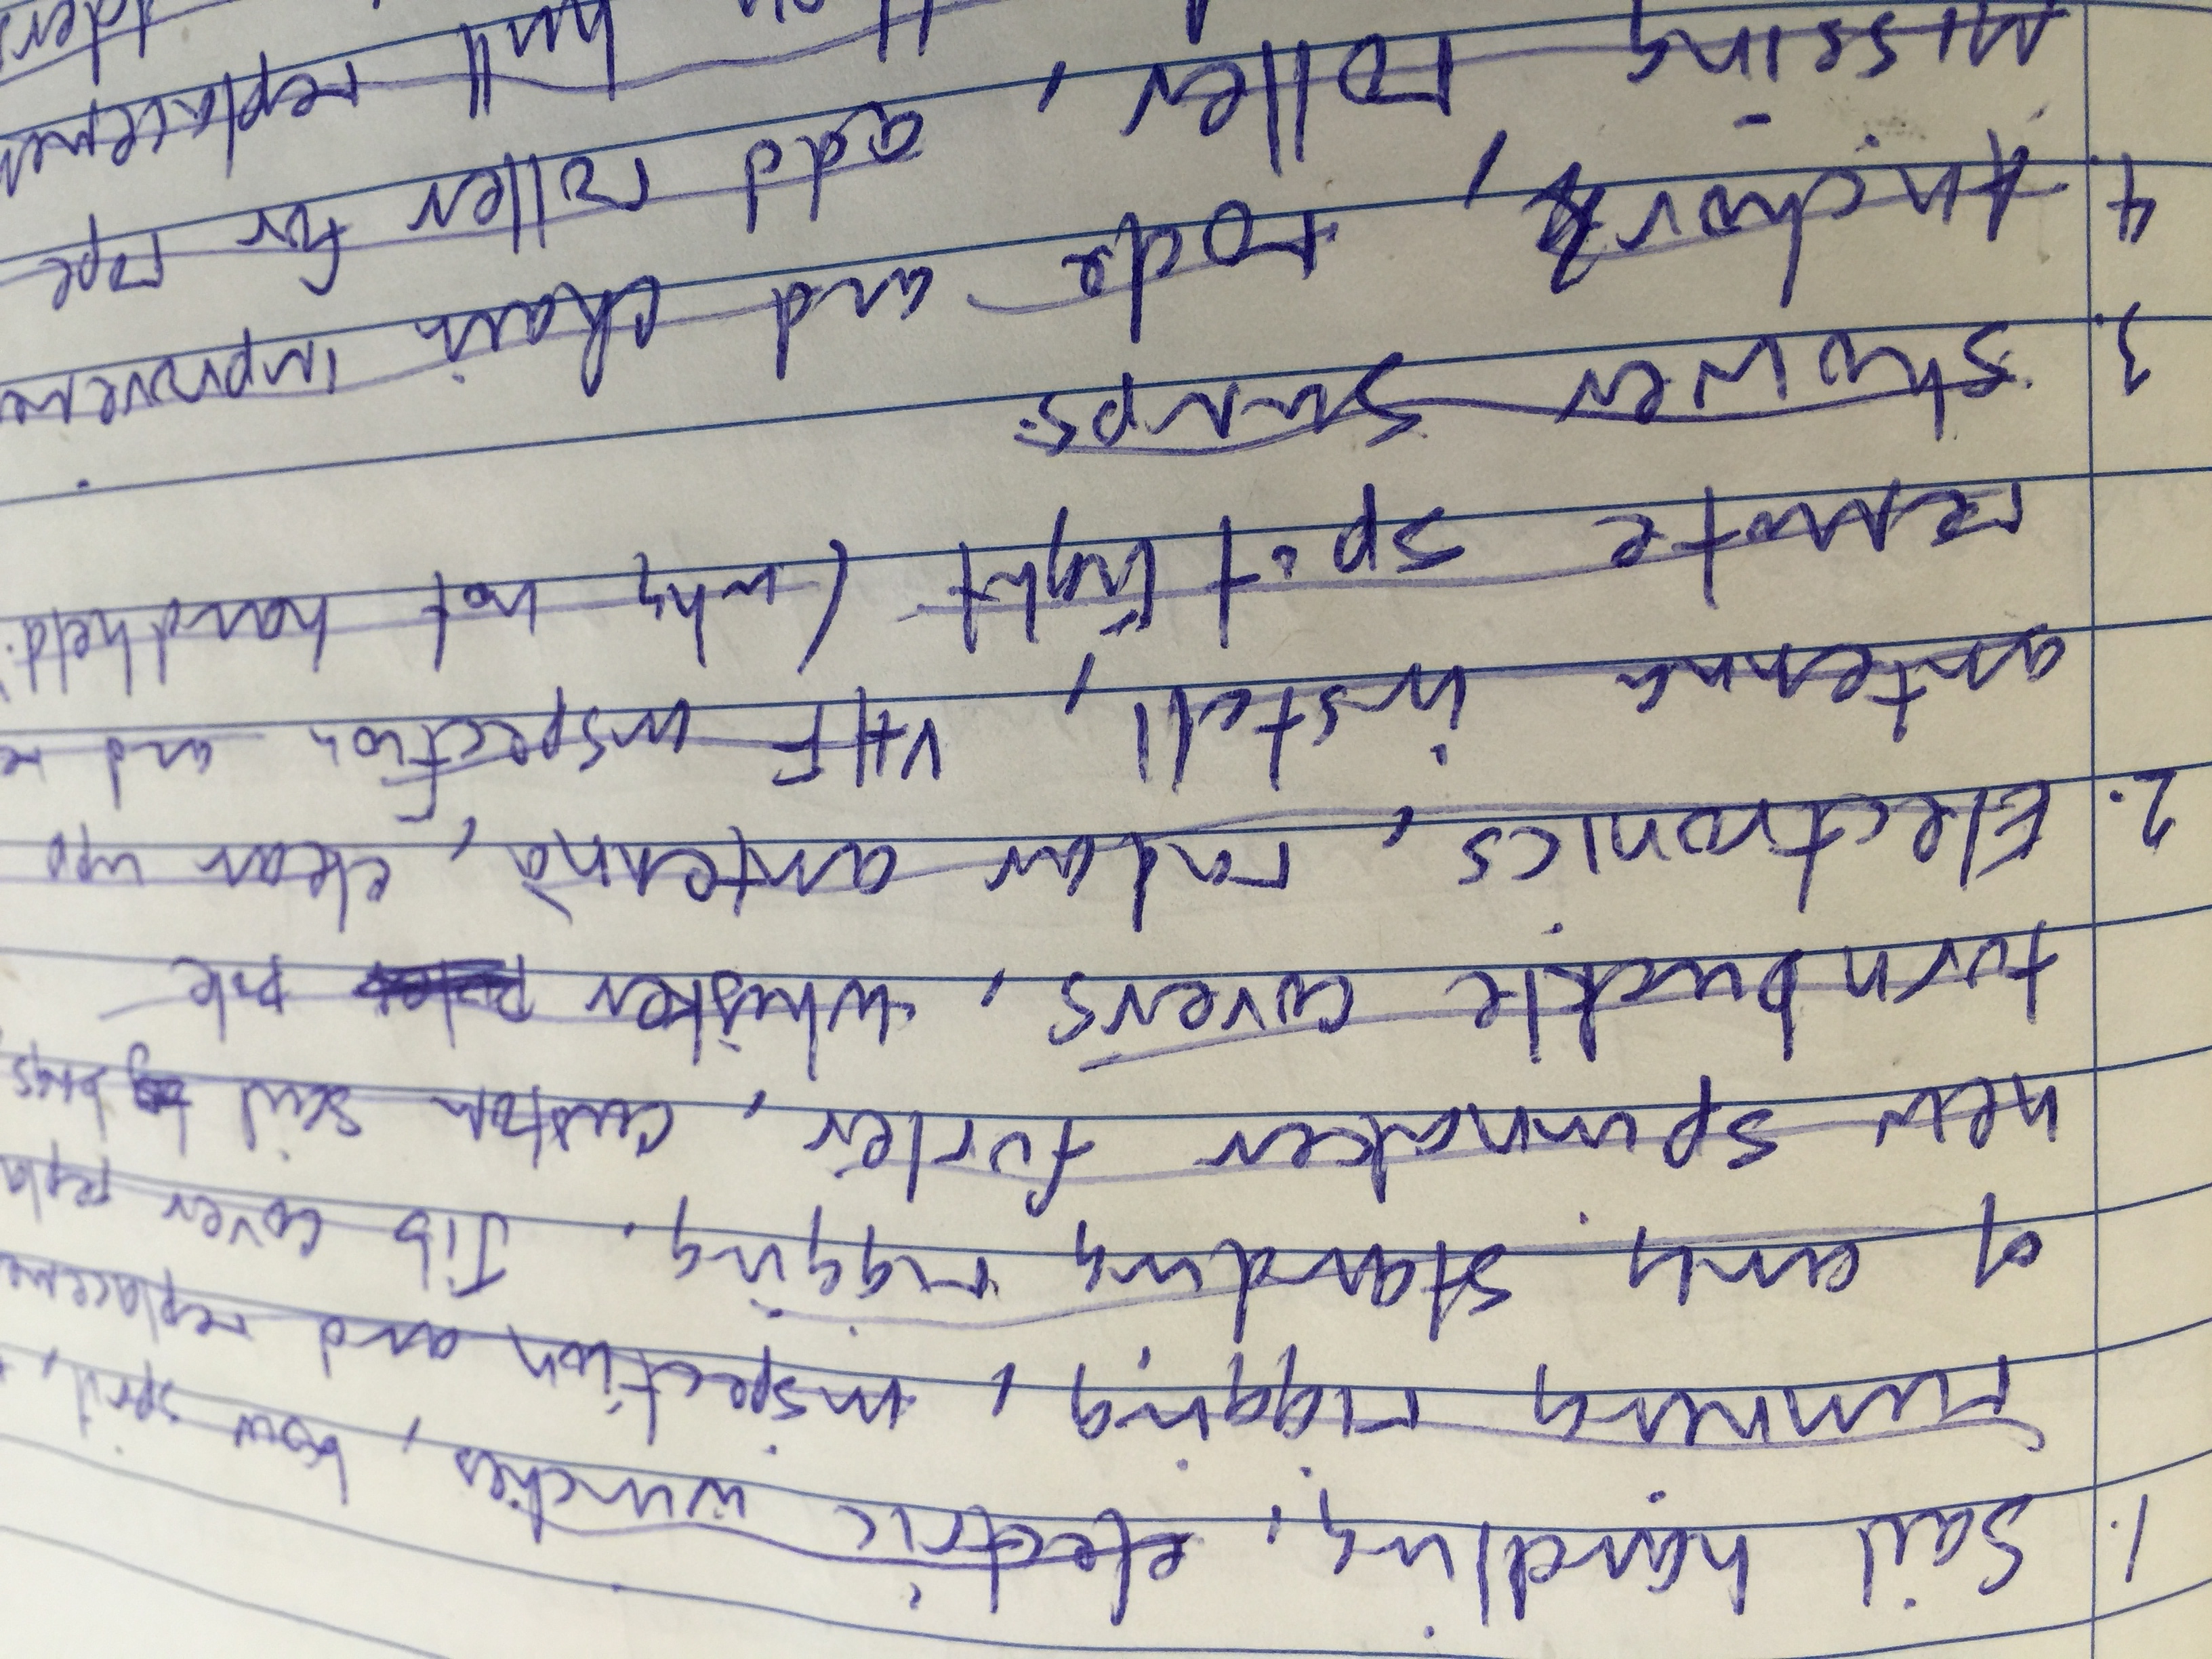 1. Sail handling, electric winches, bow sprit,
running rigging, inspection and replaceme
of any standing rigging. Jib cover repla
new spinnaker furler, custom sail bags,
turn buckle covers, whisker pole
2. Electronics, radar antenna, clean up
antenna install, VHF inspection and re
remote spot light (why not handheld.
3. Shower sumps
4. Anchor, rode and chain improveme
Missing roller, add roller for rope
hull replacemen